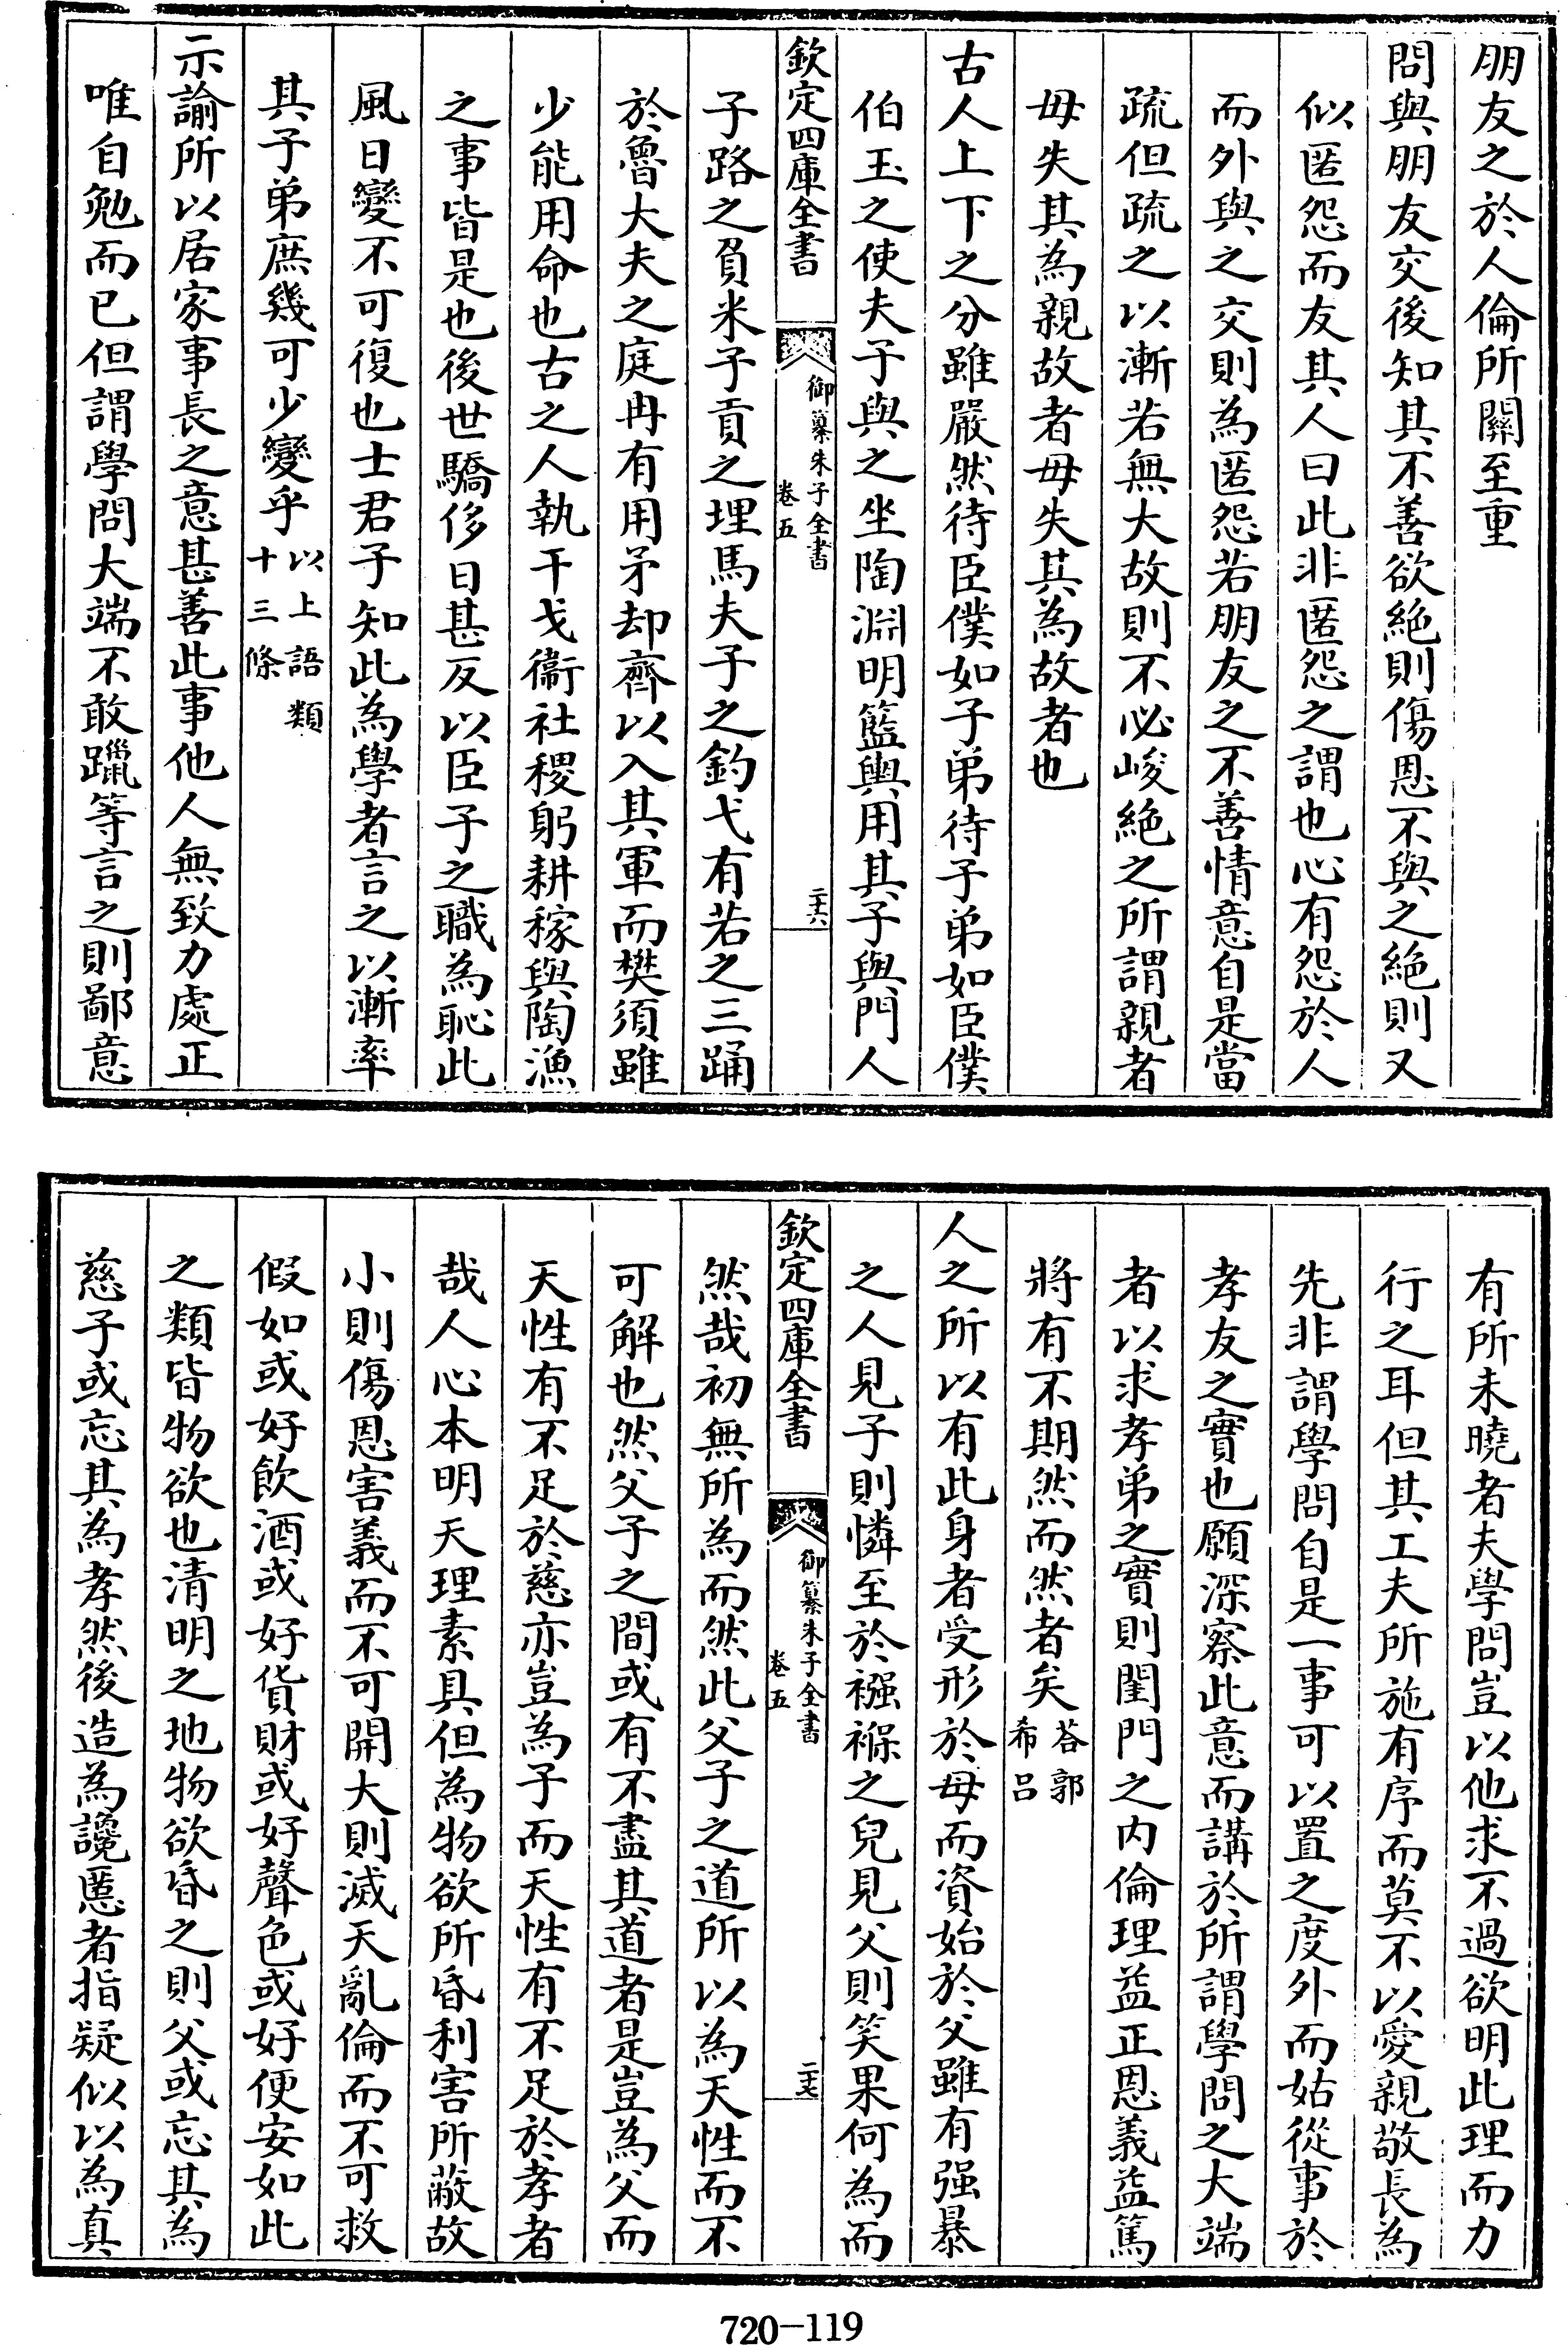 朋友之於人倫所關至重
問與朋友交後知其不善欲絶則傷恩不與之絶則又
似匿怨而友其人曰此非匿怨之謂也心有怨於人
而外與之交則為匿怨若朋友之不善情意自是當
疏但疏之以漸若無大故則不必峻絶之所謂親者
毋失其為親故者毋失其為故者也
古人上下之分雖嚴然待臣僕如子弟待子弟如臣僕
伯玉之使夫子與之坐陶淵明籃輿用其子與門人
欽定四庫全書
御纂朱子全書
卷五
二十六
子路之負米子貢之埋馬夫子之釣弋有若之三踊
於魯大夫之庭冉有用矛却齊以入其軍而樊須雖
少能用命也古之人執干戈衞社稷躬耕稼與陶漁
之事皆是也後世驕侈日甚反以臣子之職為恥此
風日變不可復也士君子知此為學者言之以漸率
其子弟庶幾可少變乎以上語類
十三條
示諭所以居家事長之意甚善此事他人無致力處正
唯自勉而已但謂學問大端不敢躐等言之則鄙意
有所未曉者夫學問豈以他求不過欲明此理而力
行之耳但其工夫所施有序而莫不以愛親敬長為
先非謂學問自是一事可以置之度外而姑從事於
孝友之實也願深察此意而講於所謂學問之大端
者以求孝弟之實則閨門之内倫理益正恩義益篤
將有不期然而然者矣荅郭
希吕
人之所以有此身者受形於母而資始於父雖有强暴
之人見子則憐至於襁褓之兒見父則笑果何為而
欽定四庫全書
御纂朱子全書
卷五
二十七
然哉初無所為而然此父子之道所以為天性而不
可解也然父子之間或有不盡其道者是豈為父而
天性有不足於慈亦豈為子而天性有不足於孝者
哉人心本明天理素具但為物欲所昏利害所蔽故
小則傷恩害義而不可開大則滅天亂倫而不可救
假如或好飲酒或好貨財或好聲色或好便安如此
之類皆物欲也清明之地物欲昏之則父或忘其為
慈子或忘其為孝然後造為讒慝者指疑似以為真
720-119